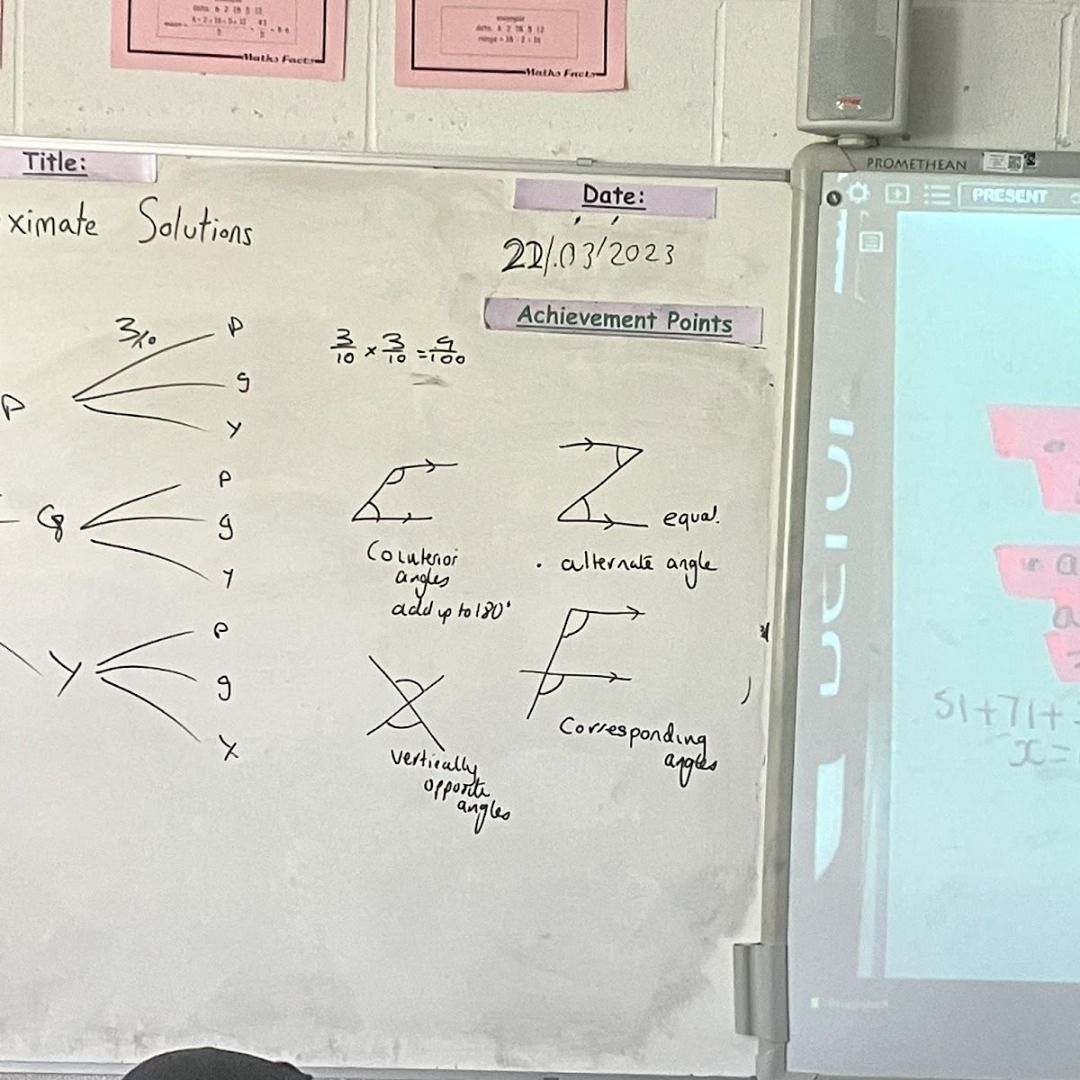 Maths Facts
Maths Facts
Title:
ximate Solutions
Date:
/03/2023
Achievement Points
PROMETHEAN
PRESENT
3/10
P
g
Y
P
3/10 × 3/10 = 9/100
G
P
g
Y
Y
P
g
Y
Cointerior
angles
add up to 180°
equal.
. alternate angle
vertically
opposite
angles
Corresponding
angles
in a
a
51+71+
x=